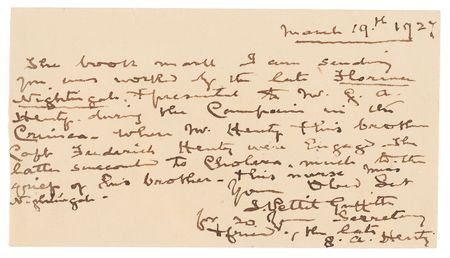 March 19th 1927
The book mark I am sending
you was worked by the late Florence
Nightingale & presented to Mr. G. A.
Henty. during the Campain in the
Crimea. When Mr. Henty & his brother
Capt Frederick Henty were Engaged The
latter succumbed to Cholera. much to the
grief of his brother. This nurse was
Nightingale. Your Obed Svt
J. Pettit Griffith
for 20 years Secretary
& friend of the late
G. A. Henty.